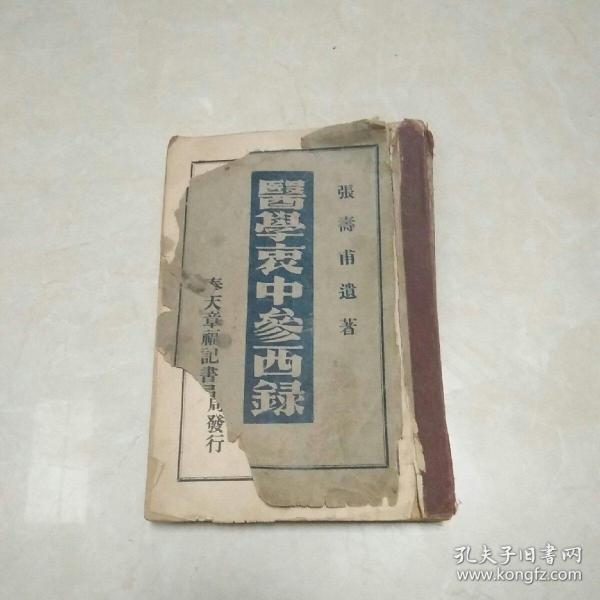 張壽甫遺著
醫學衷中參西録
奉天章福記書局發行
孔夫子旧书网
www.kongfz.com